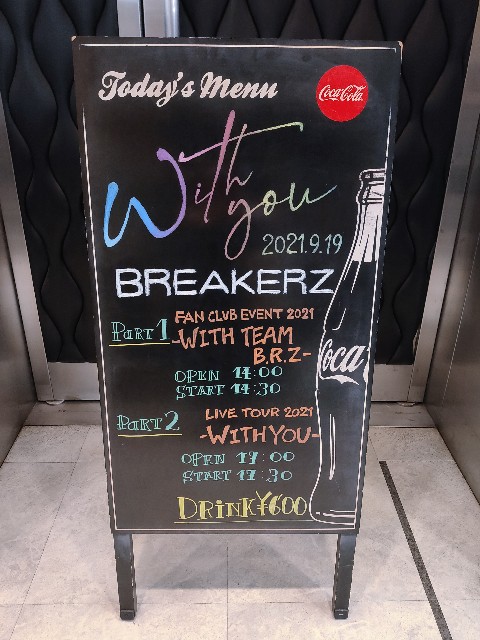 Today's Menu
Coca-Cola
With you
2021.9.19
BREAKERZ
PART 1
FAN CLUB EVENT 2021
-WITH TEAM
B.R.Z-
OPEN 14:00
START 14:30
PART 2
LIVE TOUR 2021
-WITH YOU-
OPEN 17:00
START 17:30
DRINK ¥600
Coca